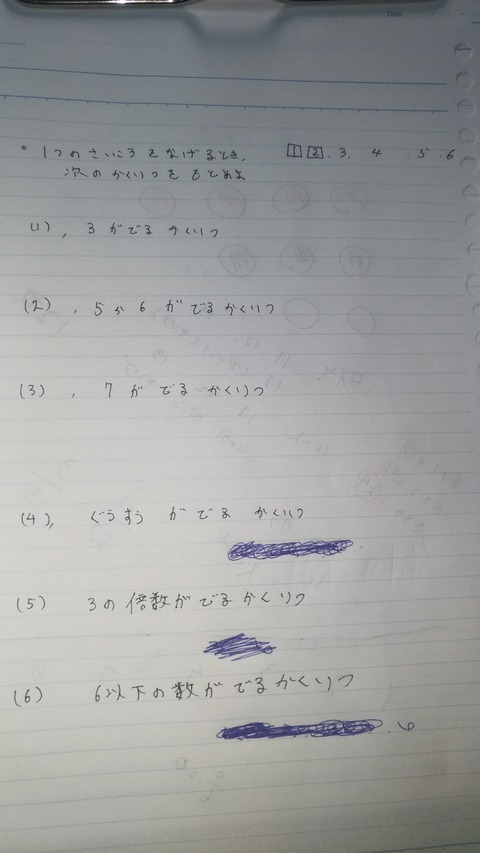 。1つのさいころをなげるとき、 1 2 . 3. 4 . 5 . 6
次のかくりつをもとめよ
(1), 3がでるかくりつ
(2), 5か6がでるかくりつ
(3), 7がでるかくりつ
(4), ぐうすうがでるかくりつ
(5) 3の倍数がでるかくりつ
(6) 6以下の数がでるかくりつ